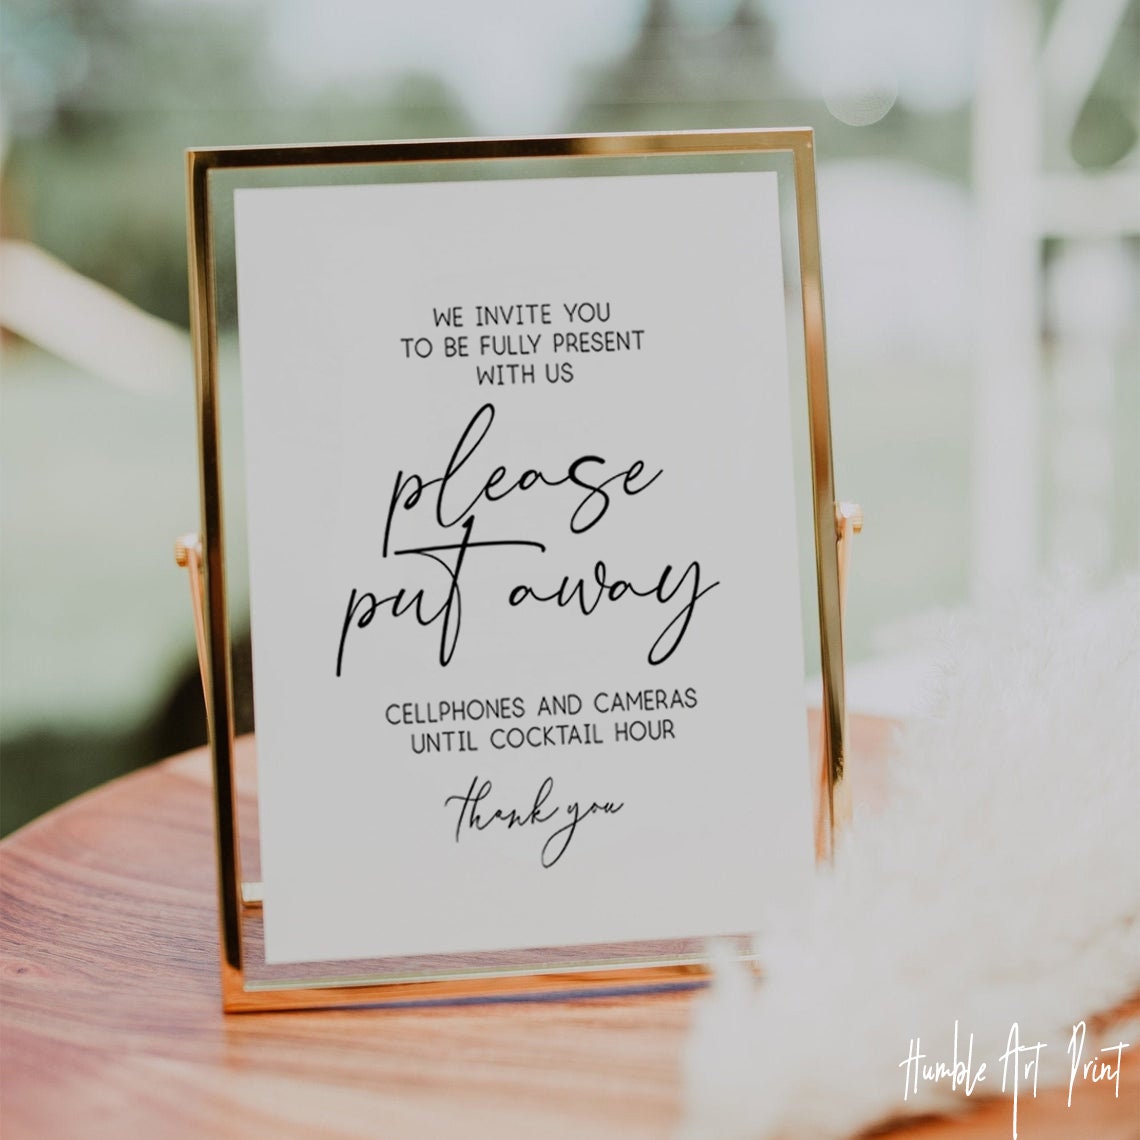 WE INVITE YOU
TO BE FULLY PRESENT
WITH US
please
put away
CELLPHONES AND CAMERAS
UNTIL COCKTAIL HOUR
thank you
Humble Art Print